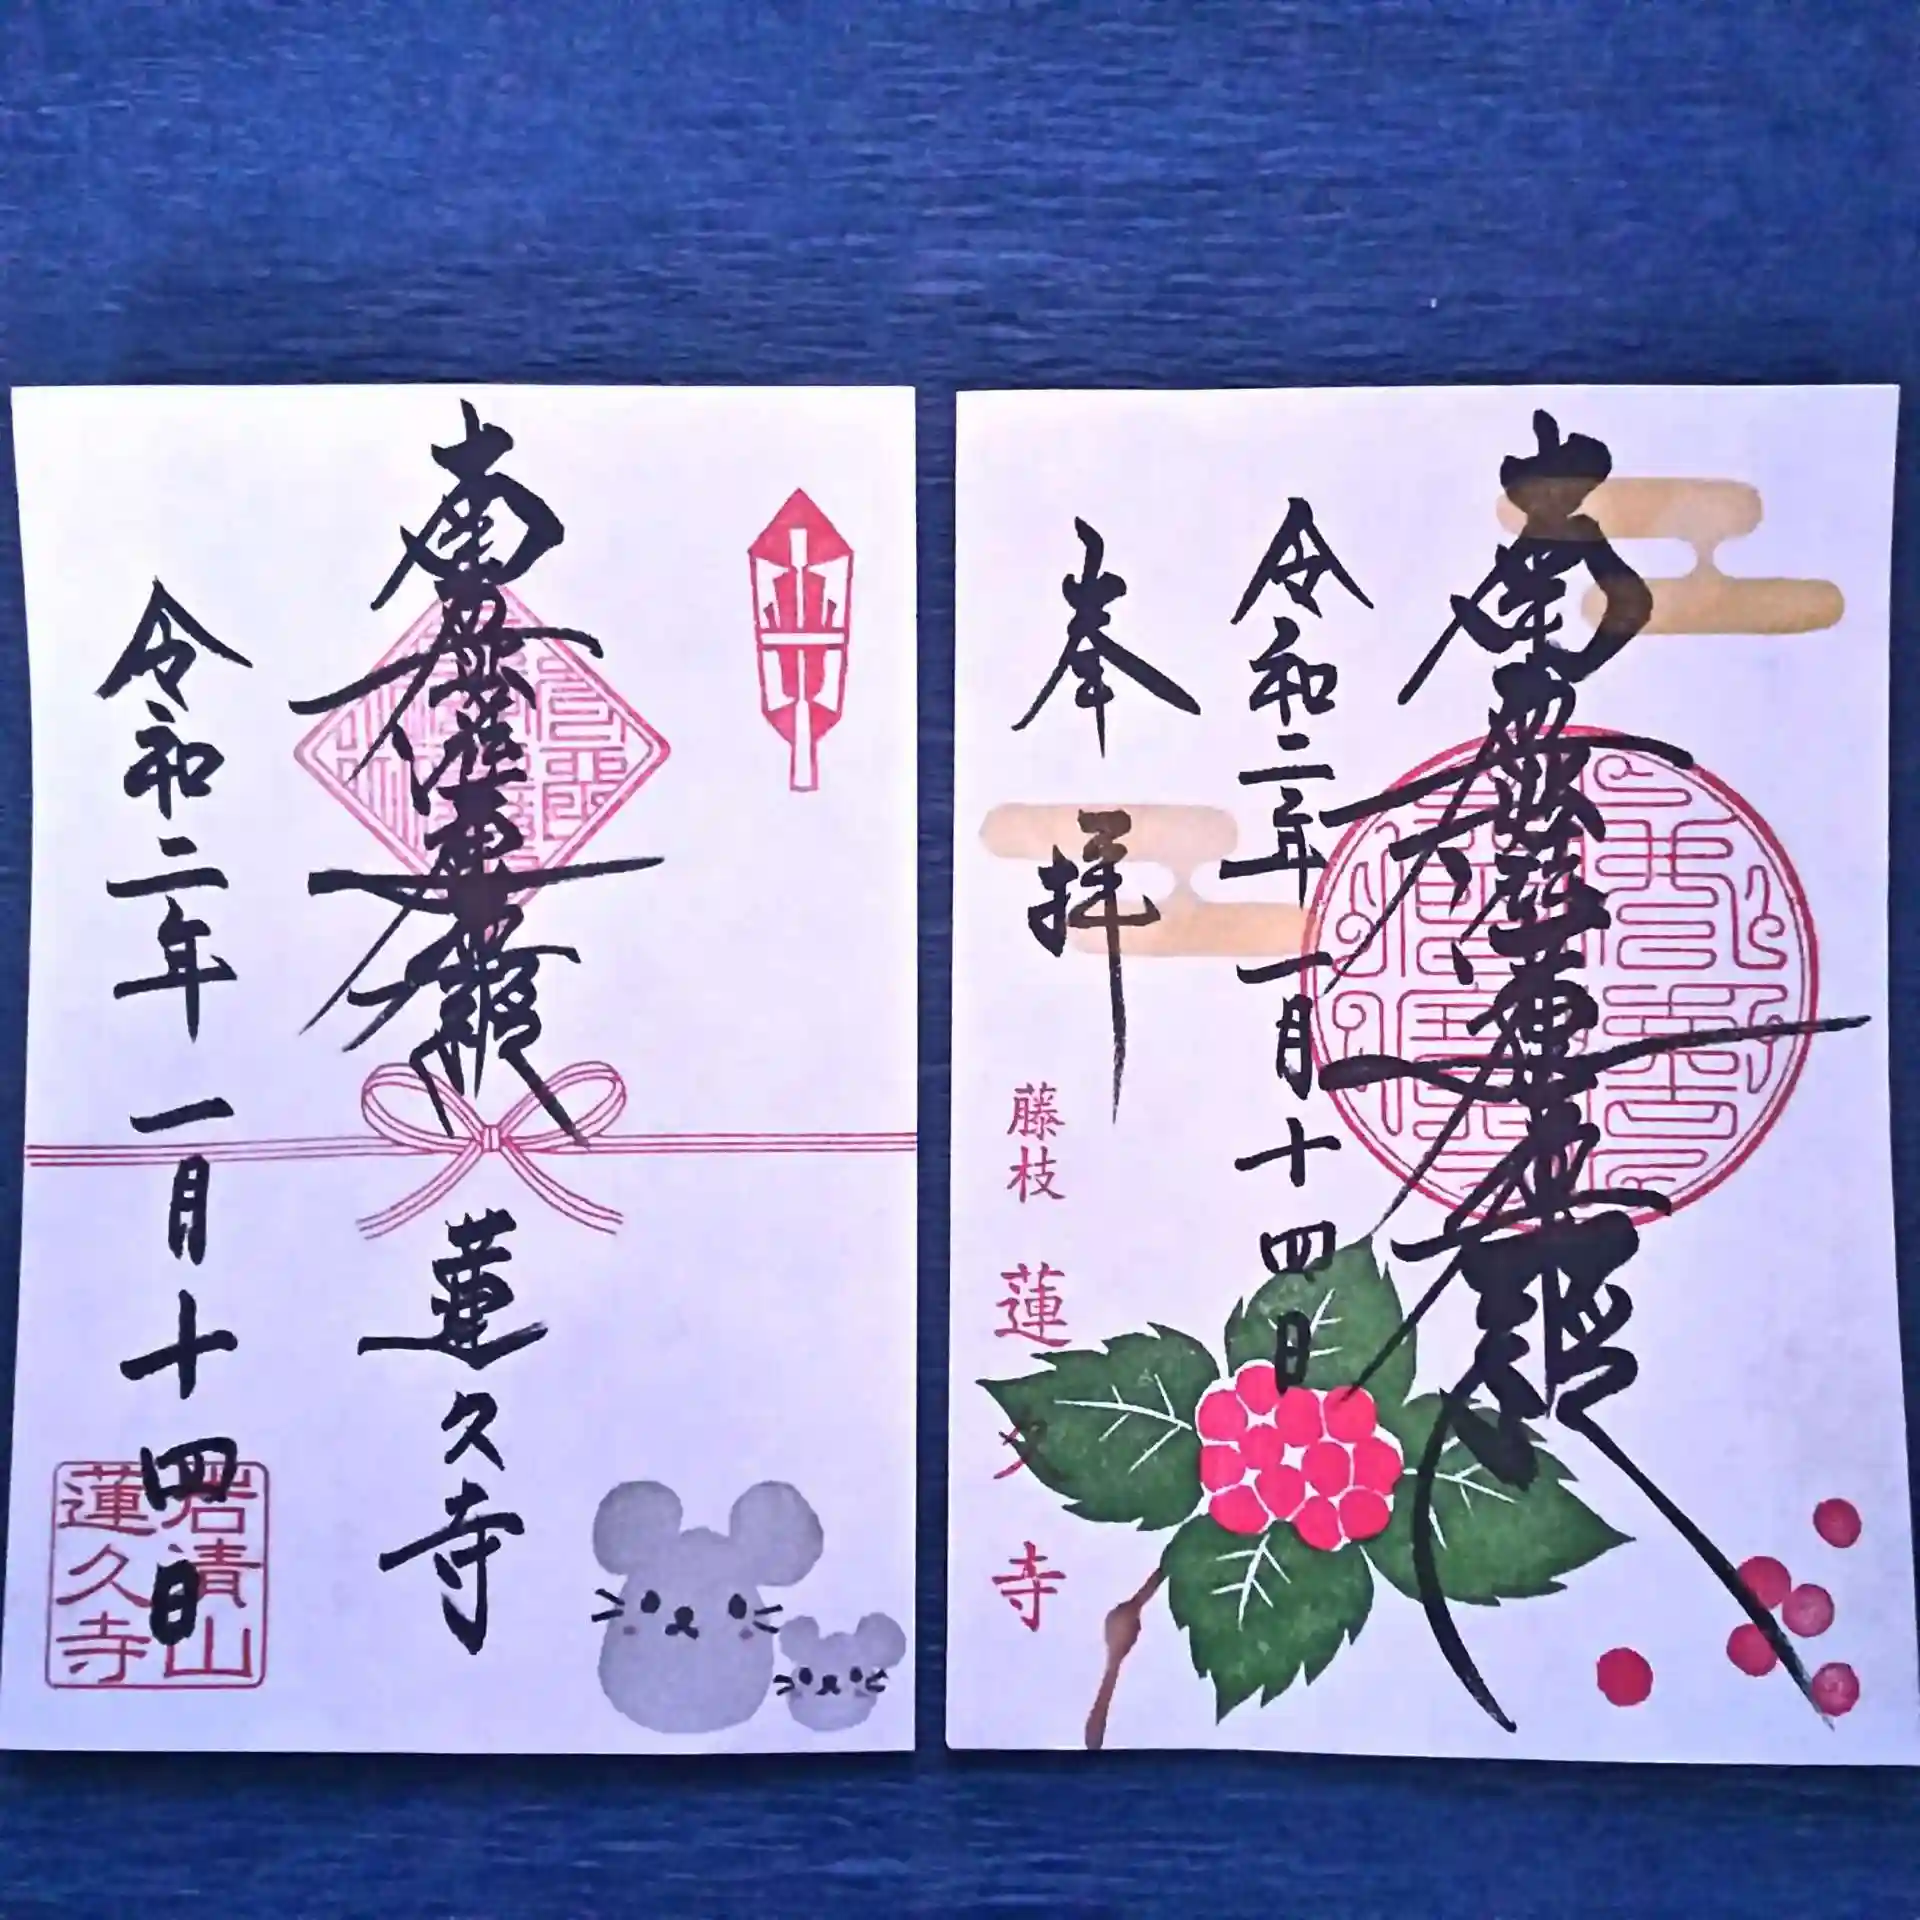 南無妙法蓮華経
蓮久寺
令和二年一月十四日
岩清山
蓮久寺
南無妙法蓮華経
令和二年一月十四日
奉拝
藤枝 蓮久寺